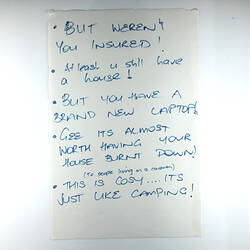 • BUT WEREN'T
YOU INSURED!
• At least u still have
a house!
• BUT YOU HAVE A
BRAND NEW LAPTOP!
• GEE ITS ALMOST
WORTH HAVING YOUR
HOUSE BURNT DOWN!
(To people living in a caravan)
• THIS IS COSY.... IT'S
JUST LIKE CAMPING!